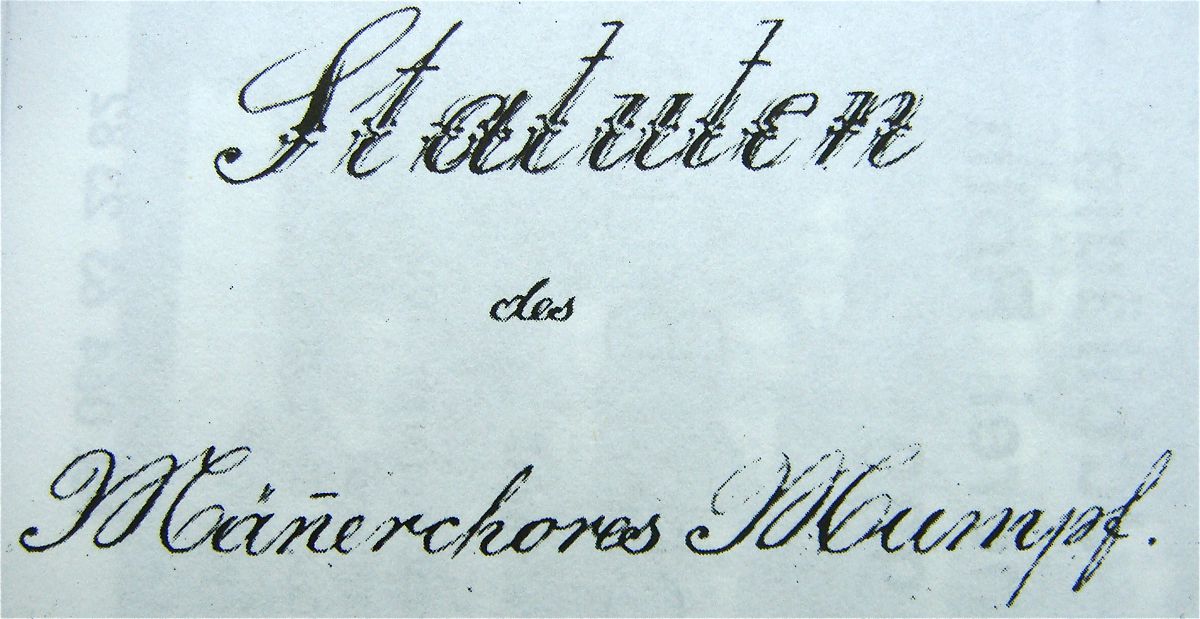 Statuten
des
Män̄erchores Mumpf.